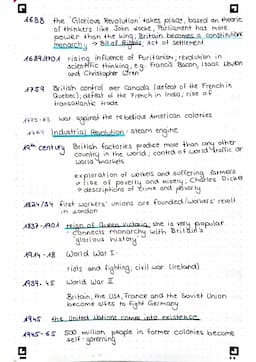 1688 the 'Glorious Revolution' takes place, based on theorie
of thinkers like John Locke, Parliament has more
power than the king; Britain becomes a constitution
monarchy → Bill of Rights; Act of Settlement
1689/1701 rising influence of Puritanism; revolution in
scientific thinking, e.g. Francis Bacon, Isaac Newton
and Christopher Wren)
1759 British control over Canada (defeat of the French in
Quebec); defeat of the French in India; rise of
transatlantic trade
1775-83 war against the rebellious American colonies
Industrial Revolution: steam engine
19th century British factories produce more than any other
country in the world; control of world traffic or
world markets
exploration of workers and suffering farmers
→ rise of poverty and misery; Charles Dickens
→ descriptions of crime and poverty
1824/34 first workers' unions are founded/workers' revolt
in London
1837-1901 reign of Queen Victoria; she is very popular
connects monarchy with Britain's
'glorious history'
1914-18 World War I
riots and fighting; civil war (Ireland)
1939-45 World War II
Britain, the USA, France and the Soviet Union
become allies to fight Germany
1945 the United Nations comes into existence
1945-65 500 million people in former colonies become
self-governing